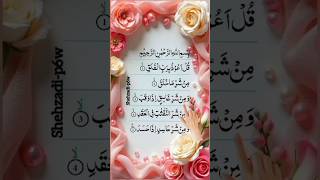 بِسْمِ اللهِ الرَّحْمٰنِ الرَّحِيْمِ
قُلْ اَعُوْذُ بِرَبِّ الْفَلَقِ ①
مِنْ شَرِّ مَا خَلَقَ ②
وَ مِنْ شَرِّ غَاسِقٍ اِذَا وَقَبَ ③
وَ مِنْ شَرِّ النَّفّٰثٰتِ فِی الْعُقَدِ ④
وَ مِنْ شَرِّ حَاسِدٍ اِذَا حَسَدَ ⑤
Shehzadi-pów
Shehzadi-pów